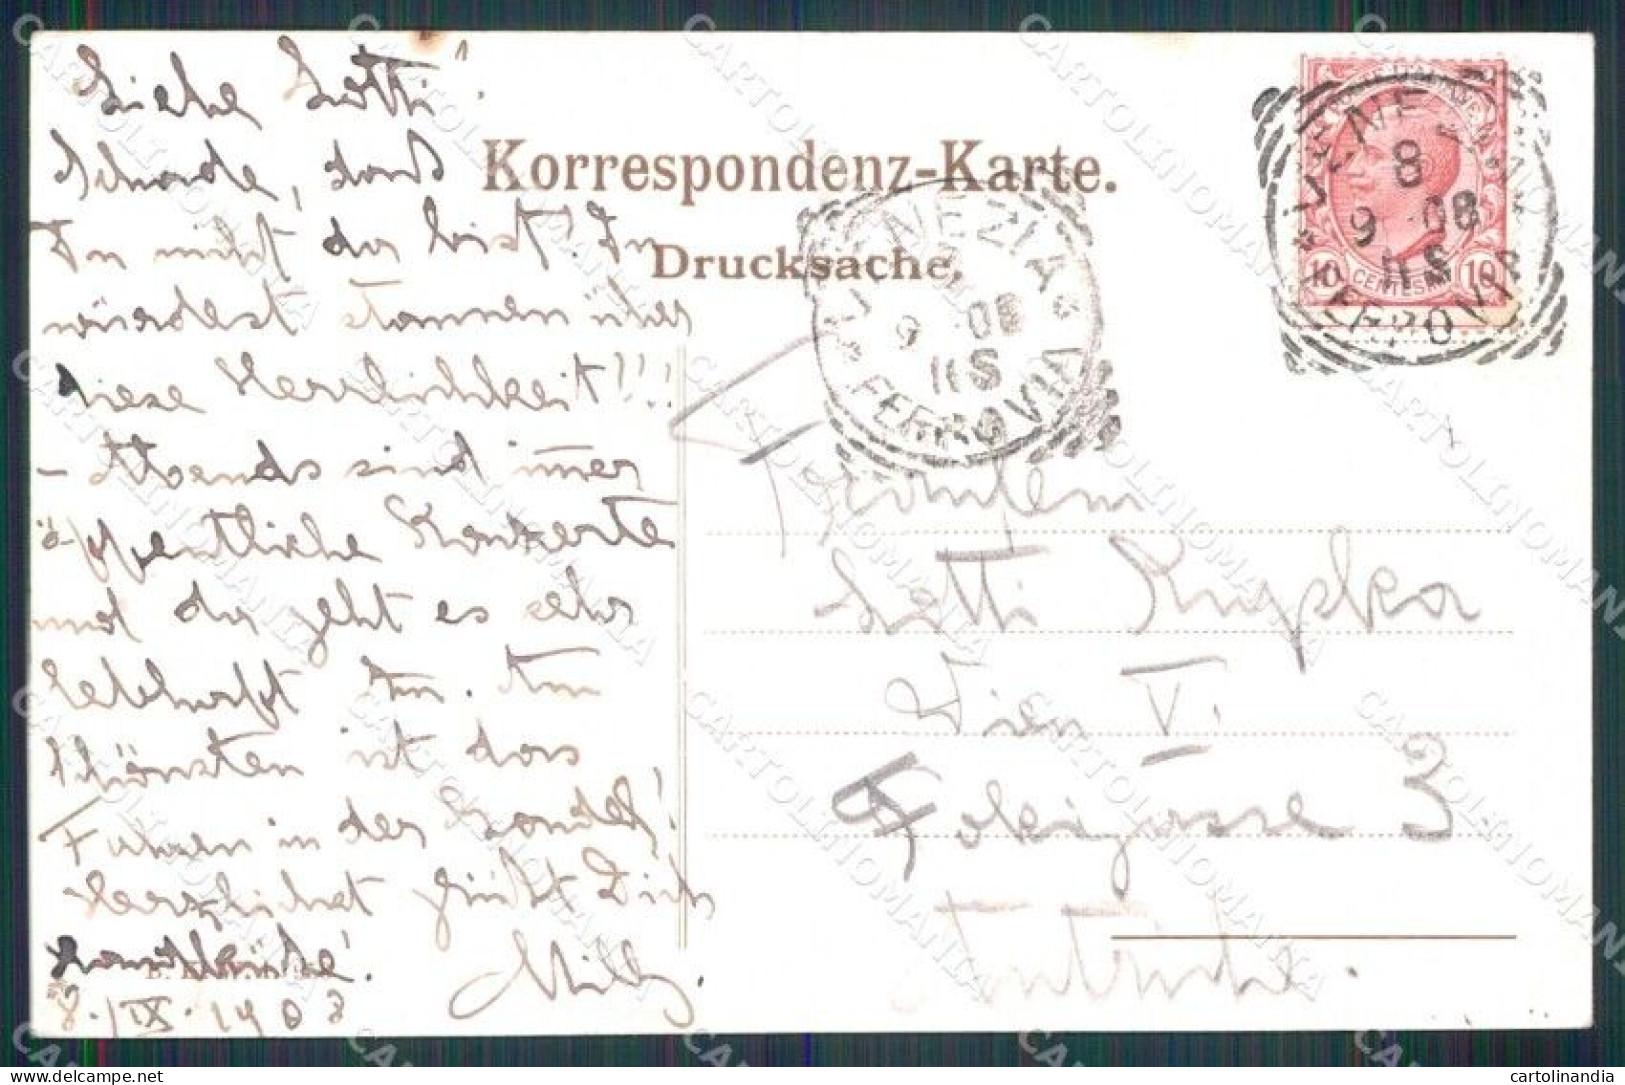 Liebe Lotti!
Schade, daß
Du nicht da bist! Du
würdest staunen über
diese Herrlichkeit!!!
- Abends sind immer
öffentliche Konzerte
und da geht es sehr
lebhaft zu. Am
schönsten ist das
Fahren in der Gondel!
Herzlichst grüßt Dich
Milly.
8./IX. 1908
Korrespondenz-Karte.
Drucksache.
VENEZIA
9 08
11 S
FERROVIA
VENEZIA
8
9 08
11 S
FERROVIA
10 CENTESIMI 10
Fräulein
Lotti
Wien V.
3
cartolinandia